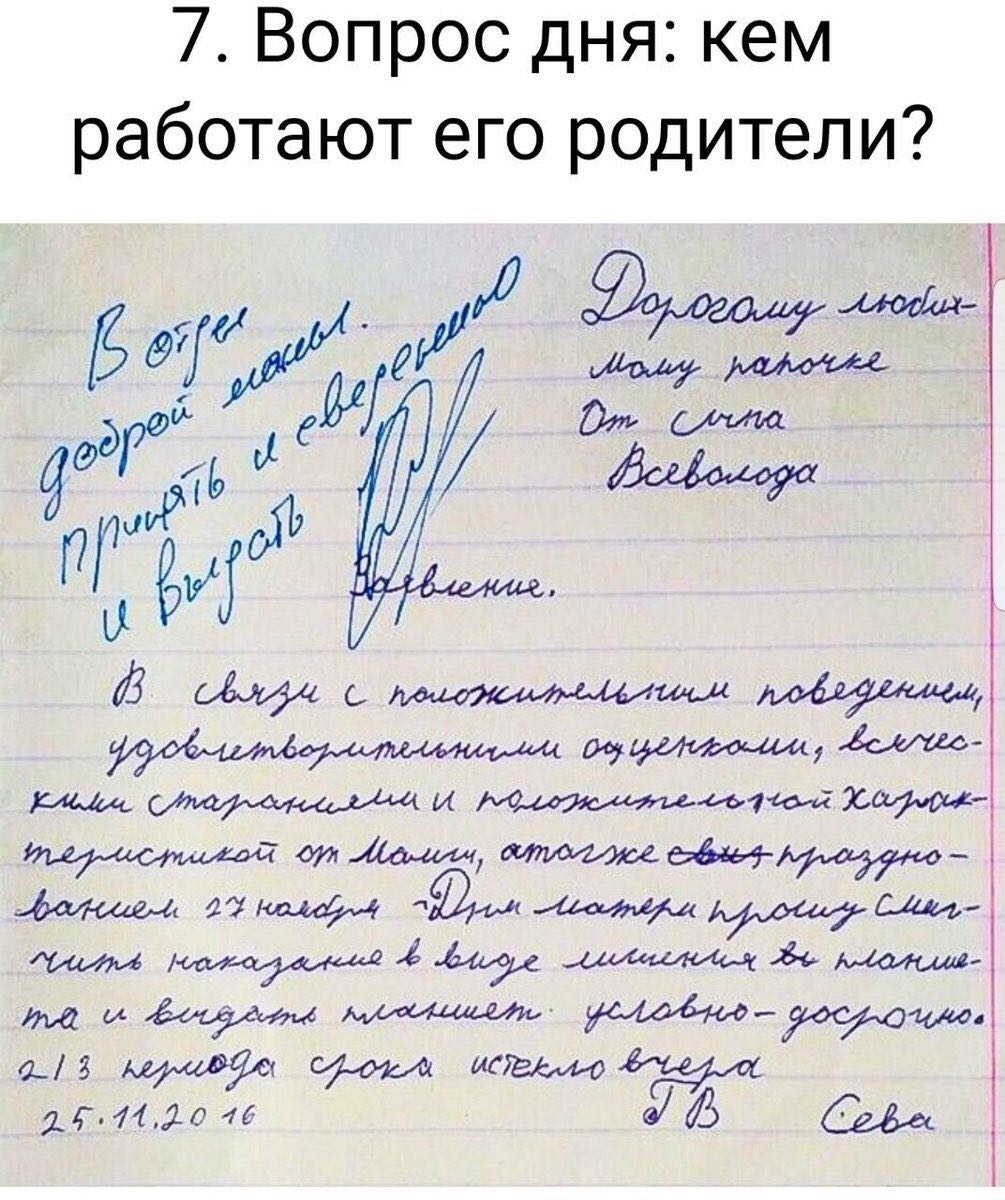 7. Вопрос дня: кем
работают его родители?
В отдел
доброй мамы.
принять к сведению
и выдать
Дорогому люби-
мому папочке
От сына
Всеволода
Заявление.
В связи с положительным поведением,
удовлетворительными оценками, всячес-
кими стараниями и положительной харак-
теристикой от Мамы, атагже праздно-
ванием 27 ноября - Дня матери прошу смяг-
чить наказание в виде лишения планше-
та и выдать планшет условно-досрочно.
2/3 периода срока истекло вчера
25.11.2016 ГВ Сева